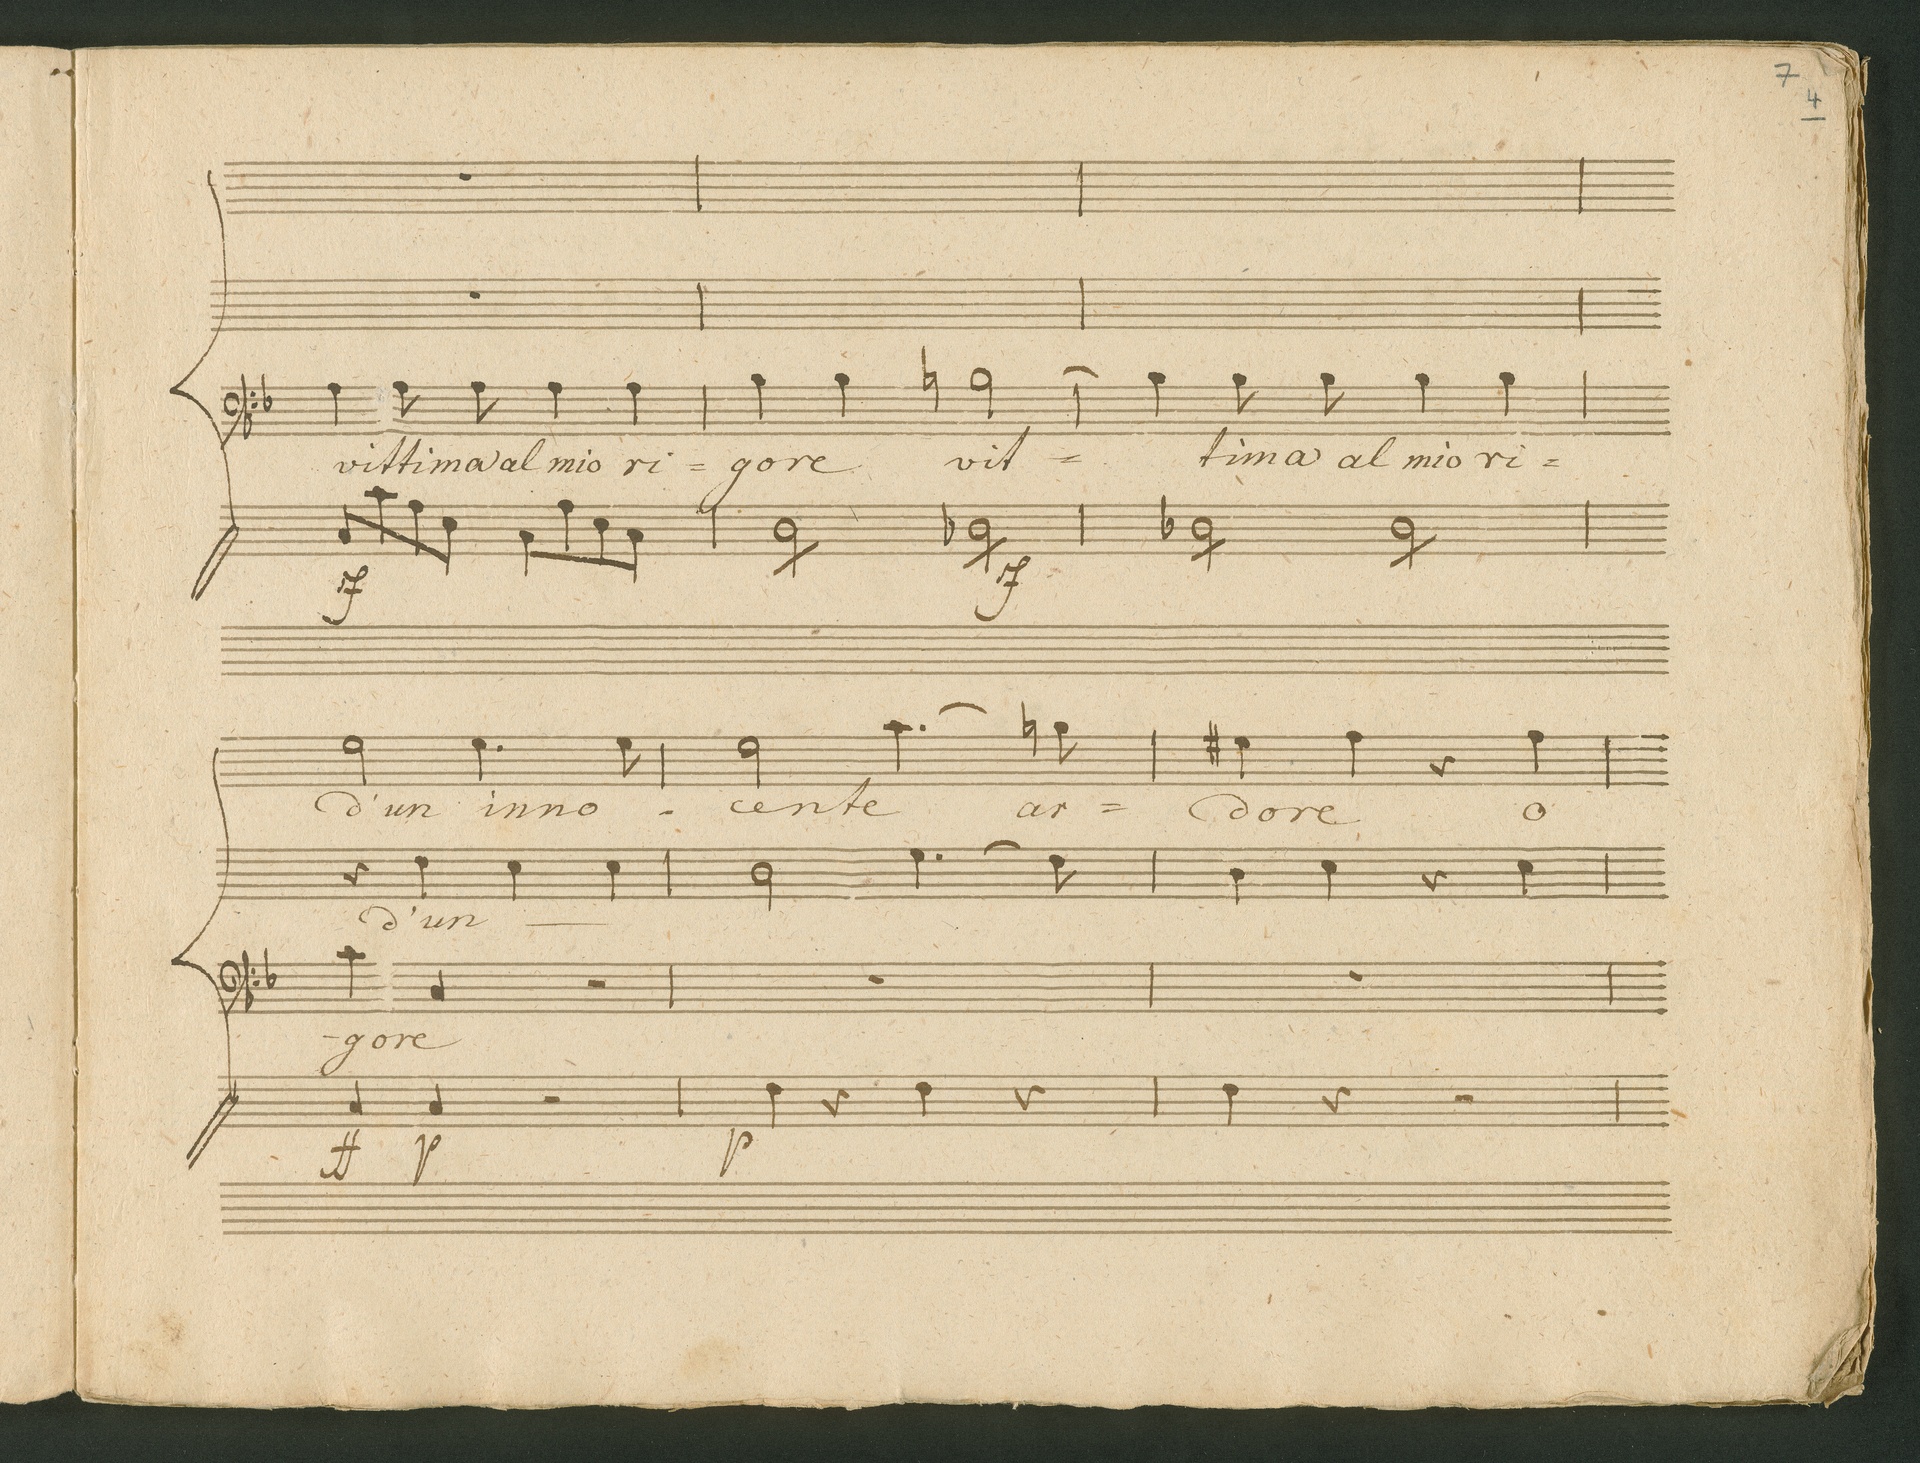 7
4
vittima al mio ri = gore vit = tima al mio ri =
sf sf
d'un inno - cente ar = dore o
d'un
-gore
ff p p